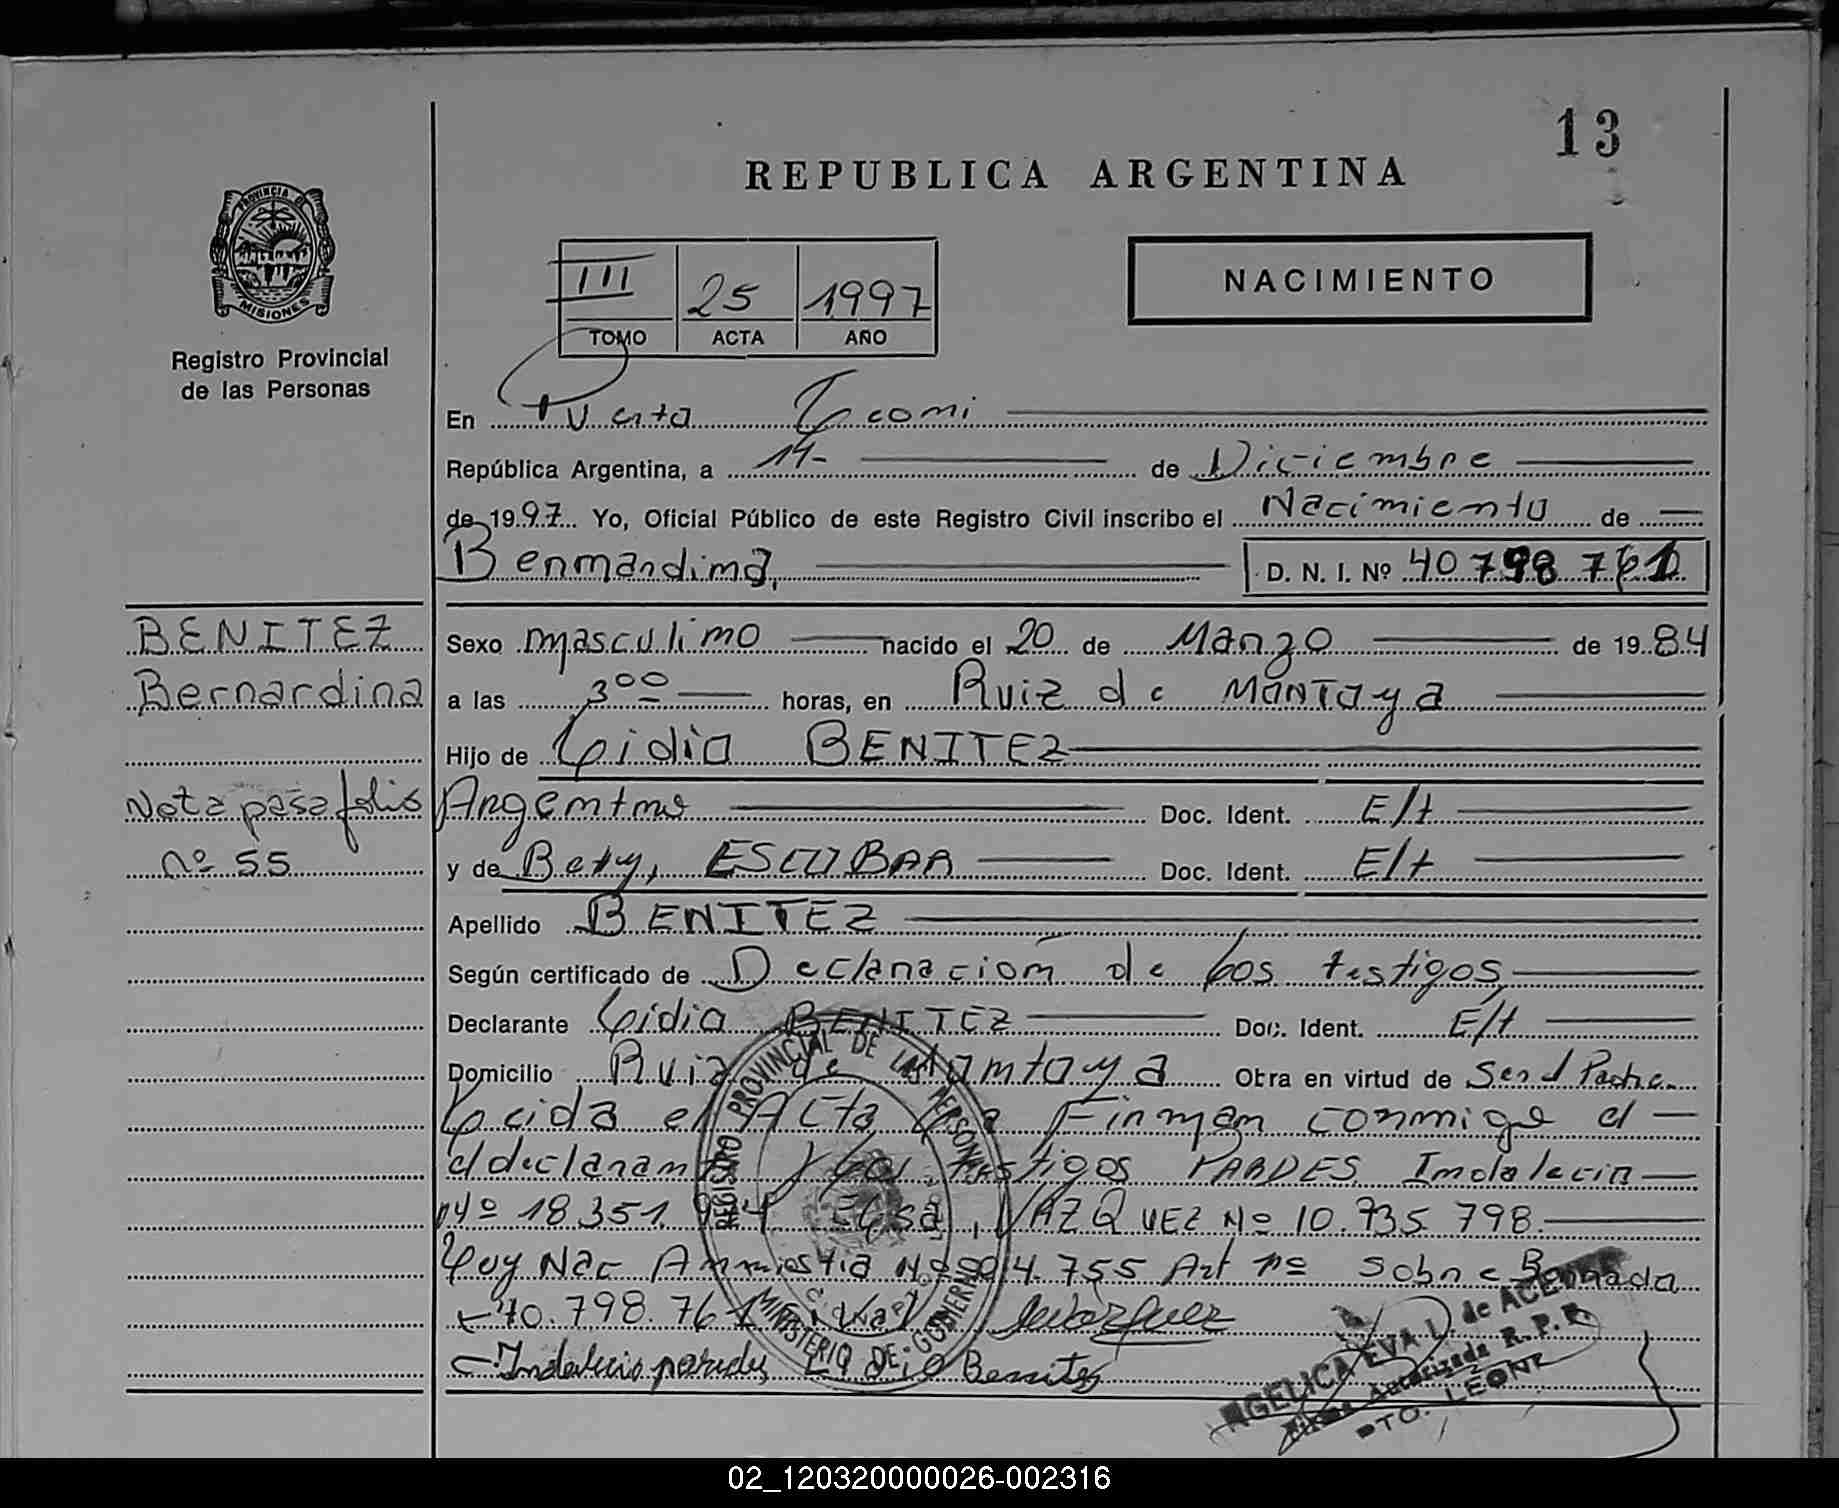 13
REPUBLICA ARGENTINA
PROVINCIA DE
MISIONES
Registro Provincial
de las Personas
III 25 1997
TOMO ACTA AÑO
NACIMIENTO
En Puerto Leoni
República Argentina, a 14- de Diciembre
de 1997 Yo, Oficial Público de este Registro Civil inscribo el Nacimiento de
Bernardina, D. N. I. Nº 40 798 761
BENITEZ
Bernardina
Nota pasa folio
nº 55
Sexo masculino nacido el 20 de Marzo de 1984
a las 3 00 horas, en Ruiz de MONTOya
Hijo de Lidio BENITEZ
Argentino Doc. Ident. E/t
y de Bety, ESCOBAR Doc. Ident. E/t
Apellido BENITEZ
Según certificado de Declaración de Los testigos,
Declarante Lidio BENITEZ Doc. Ident. E/t
Domicilio Ruiz de Montoya Obra en virtud de Ser el Padre
Leida el Acta La Firman conmigo el
el declarante y Los testigos PAREDES Indalecio
Nº 18.351. Elsa, VAZQUEZ Nº 10.735 798.
Ley Nac Amnistia Nº 24.755 Art nº Sobre Borrada
40.798.761 Vale
Indalecio paredes Lidio Benites
REGISTRO PROVINCIAL DE LAS PERSONAS
MINISTERIO DE GOBIERNO
ANGELICA EVA L. de ACEVEDO
Firma Autorizada R.P.P.
PTO. LEONI
02_120320000026-002316